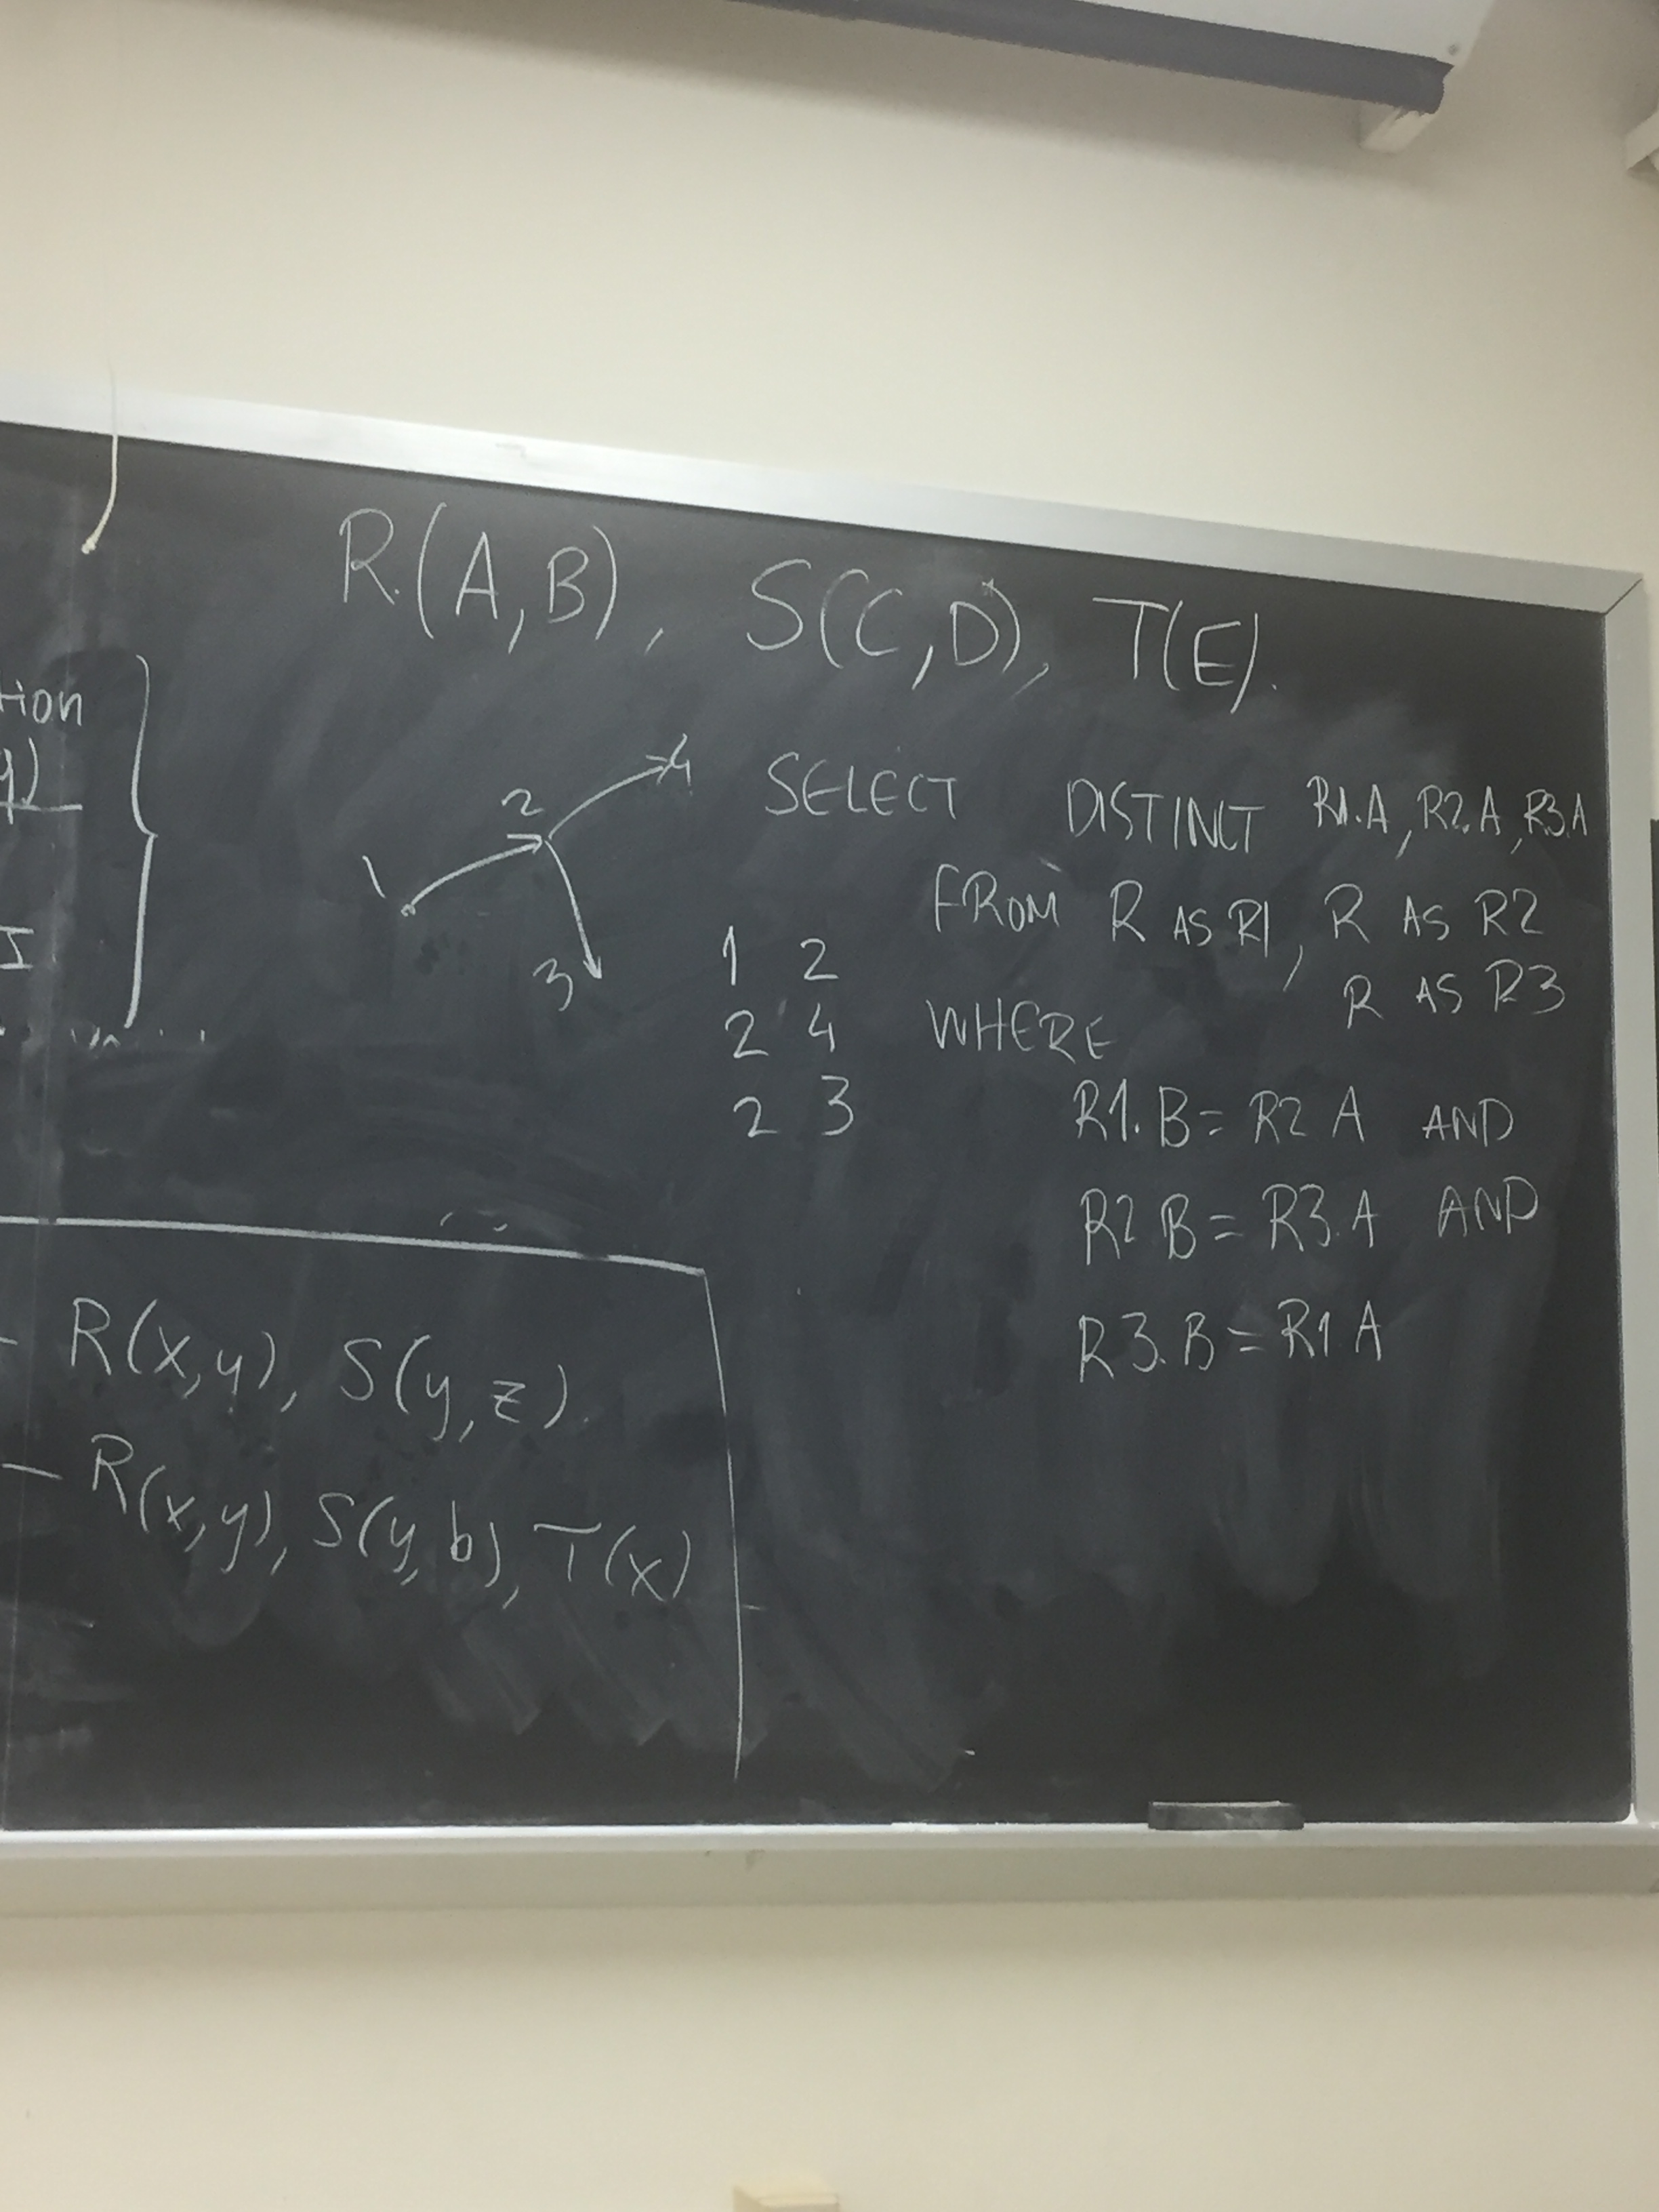 R(A,B), S(C,D), T(E).
tion
y)
I
1
2
4
3
1 2
2 4
2 3
SELECT DISTINCT R1.A, R2.A, R3.A
FROM R AS R1, R AS R2
R AS R3
WHERE
R1.B = R2 A AND
R2 B = R3.A AND
R3.B = R1 A
- R(x,y), S(y,z).
- R(x,y), S(y,b), T(x)